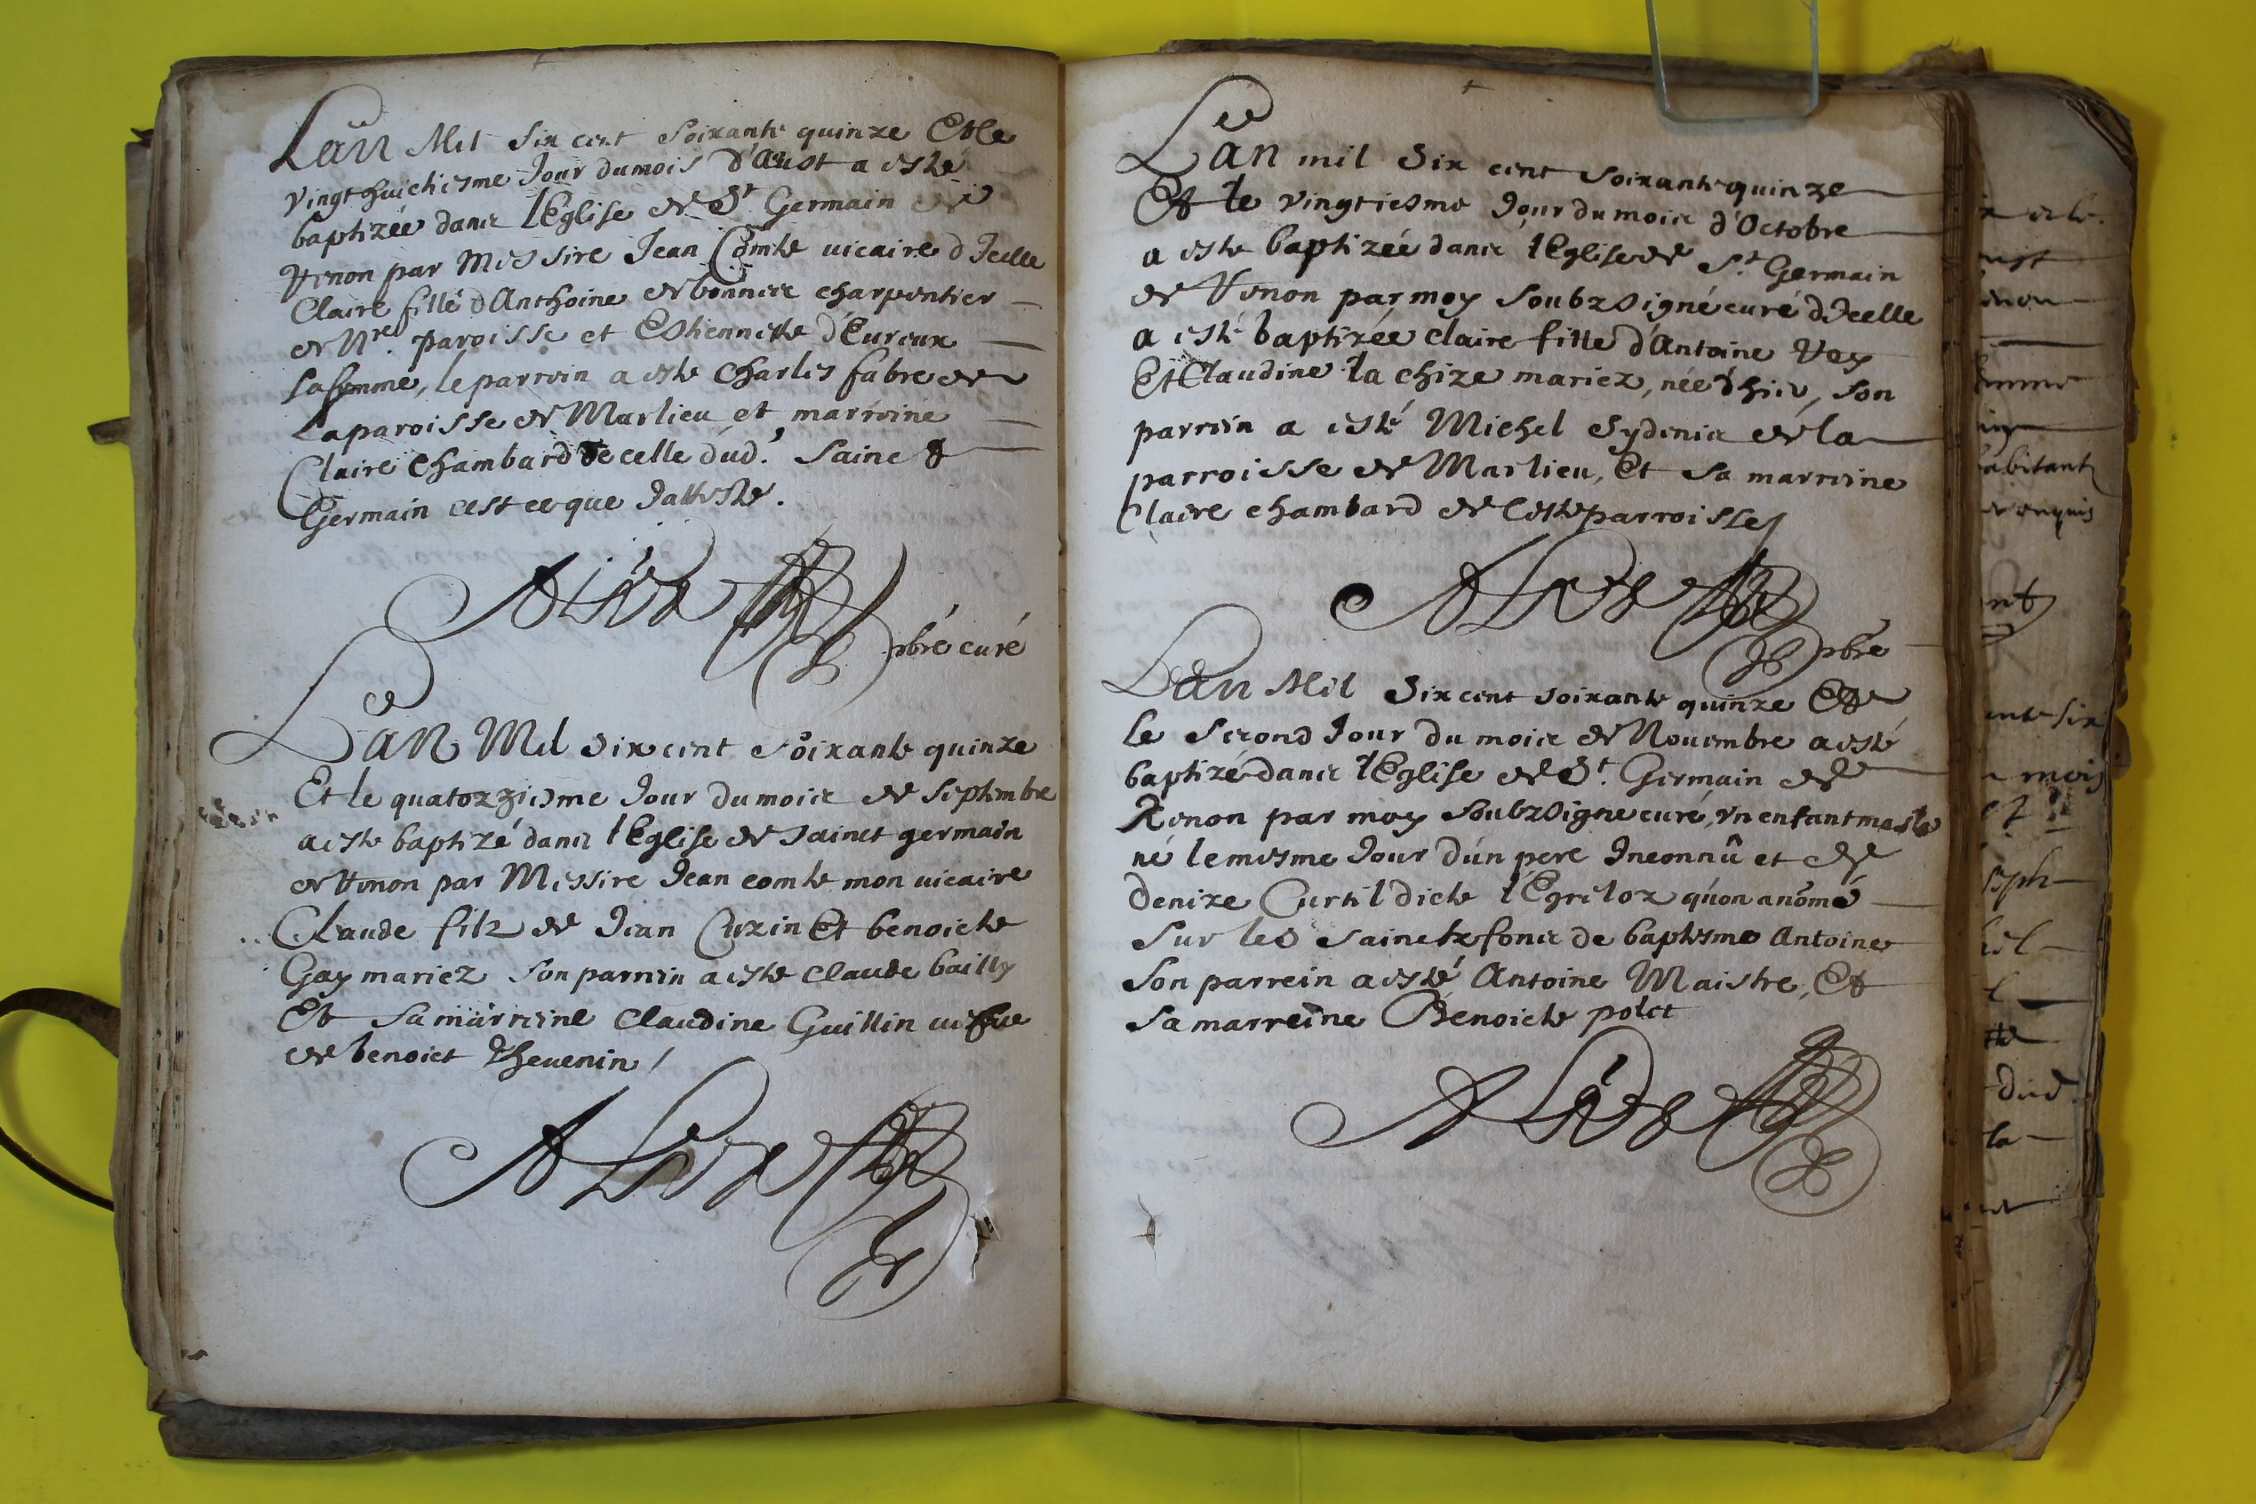 Lan Mil Six cent Soixante quinze Et le
vingt huictiesme Jour du mois d'Aust a esté
baptizée dans l'Eglise de St Germain de
Renon par Messire Jean Comte vicaire d'Icelle
Claire fille d'Anthoine de bonnes charpentier
de Nre. paroisse et Estiennette d'Eureux
sa femme, le parrein a este Charles fabre de
La paroisse de Marlieu et marreine
Claire Chambard de celle dud. Sainct
Germain cest ce que Jatteste.
pbré curé
Lan Mil Six cent Soixante quinze
Et le quatorziesme Jour du mois de Septembre
a este baptizé dans l'Eglise de Sainct germain
de Renon par Messire Jean Comte mon vicaire
Claude filz de Jean Cuzin Et benoicte
Gay mariez Son parrein a este Claude bailly
Et Sa marreine Claudine Guillin
de benoict Thevenin /
Lan mil Six cent soixante quinze
Et le vingtiesme Jour du mois d'Octobre
a este baptizée dans l'Eglise de St Germain
de Renon par moy Soubzsigné curé d'Icelle
a esté baptizée Claire fille d'Antoine Vey
Et Claudine la chize mariez, née d'hier, Son
parrein a esté Michel Sydenie de la
parroisse de Marlieu, Et Sa marreine
Claire Chambard de Ceste parroisse
pbré
Lan Mil Six cent soixante quinze Et
le Second Jour du mois de Nouembre a esté
baptizé dans l'Eglise de St Germain de
Renon par moy Soubzsigne curé, vn enfant masle
né le mesme Jour d'un pere Inconnû et de
Denize Curtil dicte l'Egriloz qu'on a nomé
Sur les Sainctz fons de baptesme Antoine
Son parrein a esté Antoine Maistre, Et
Sa marreine Benoicte polet